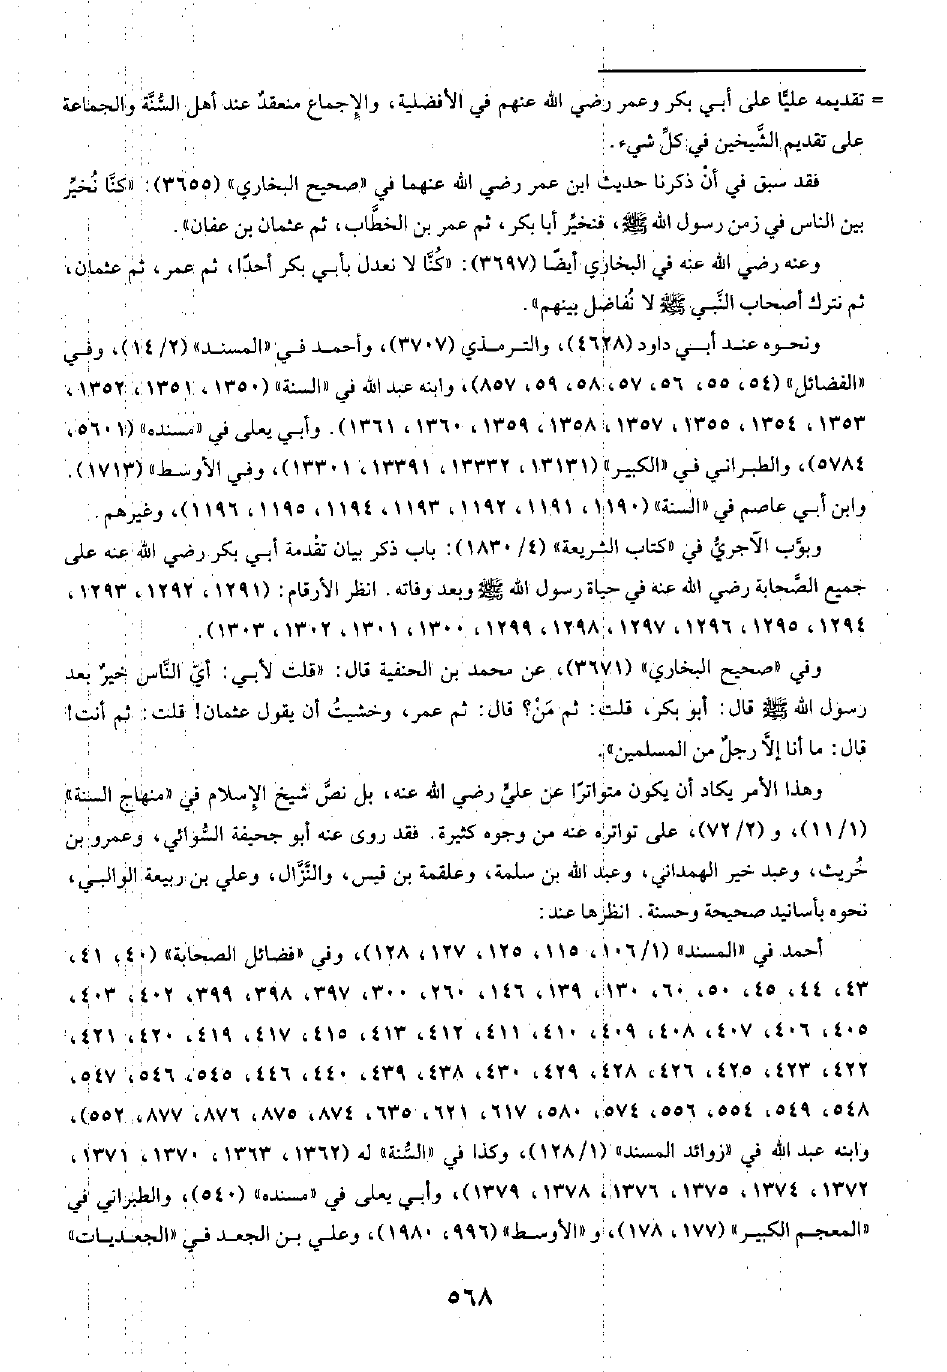 = تقديمه عليًّا على أبي بكر وعمر رضي الله عنهم في الأفضلية، والإجماع منعقدٌ عند أهل السُّنَّة والجماعة
على تقديم الشَّيخين في كلِّ شيء.
فقد سبق في أنْ ذكرنا حديث ابن عمر رضي الله عنهما في «صحيح البخاري» (٣٦٥٥): «كنَّا نُخيِّر
بين الناس في زمن رسول الله ﷺ، فنخيِّر أبا بكر، ثم عمر بن الخطَّاب، ثم عثمان بن عفان».
وعنه رضي الله عنه في البخاري أيضًا (٣٦٩٧): «كُنَّا لا نعدل بأبي بكر أحدًا، ثم عمر، ثم عثمان،
ثم نترك أصحاب النَّبي ﷺ لا نُفاضل بينهم».
ونحوه عند أبي داود (٤٦٢٨)، والترمذي (٣٧٠٧)، وأحمد في «المسند» (٢/ ١٤)، وفي
«الفضائل» (٥٤، ٥٥، ٥٦، ٥٧، ٥٨، ٥٩، ٨٥٧)، وابنه عبد الله في «السنة» (١٣٥٠، ١٣٥١، ١٣٥٢،
١٣٥٣، ١٣٥٤، ١٣٥٥، ١٣٥٧، ١٣٥٨، ١٣٥٩، ١٣٦٠، ١٣٦١). وأبي يعلى في «مسنده» (٥٦٠١،
٥٧٨٤)، والطبراني في «الكبير» (١٣١٣١، ١٣٣٣٢، ١٣٣٩١، ١٣٣٠١)، وفي الأوسط» (١٧١٣).
وابن أبي عاصم في «السنة» (١١٩٠، ١١٩١، ١١٩٢، ١١٩٣، ١١٩٤، ١١٩٥، ١١٩٦)، وغيرهم.
وبوَّب الآجريُّ في «كتاب الشريعة» (٤/ ١٨٣٠): باب ذكر بيان تقْدمة أبي بكر رضي الله عنه على
جميع الصَّحابة رضي الله عنه في حياة رسول الله ﷺ وبعد وفاته. انظر الأرقام: (١٢٩١، ١٢٩٢، ١٢٩٣،
١٢٩٤، ١٢٩٥، ١٢٩٦، ١٢٩٧، ١٢٩٨، ١٢٩٩، ١٣٠٠، ١٣٠١، ١٣٠٢، ١٣٠٣).
وفي «صحيح البخاري» (٣٦٧١)، عن محمد بن الحنفية قال: «قلت لأبي: أيّ النَّاس خيرٌ بعد
رسول الله ﷺ قال: أبو بكر، قلت: ثم مَنْ؟ قال: ثم عمر، وخشيتُ أن يقول عثمان! قلت: ثم أنت!
قال: ما أنا إلاَّ رجلٌ من المسلمين».
وهذا الأمر يكاد أن يكون متواترًا عن عليٍّ رضي الله عنه، بل نصَّ شيخ الإسلام في «منهاج السنة»
(١/ ١١)، و (٢/ ٧٢)، على تواتره عنه من وجوه كثيرة. فقد روى عنه أبو جحيفة السُّوائي، وعمرو بن
حُريث، وعبد خير الهمداني، وعبد الله بن سلمة، وعلقمة بن قيس، والنَّزَّال، وعلي بن ربيعة الوالبي،
نحوه بأسانيد صحيحة وحسنة. انظرها عند:
أحمد في «المسند» (١/ ١٠٦، ١١٥، ١٢٥، ١٢٧، ١٢٨)، وفي «فضائل الصحابة» (٤٠، ٤١،
٤٣، ٤٤، ٤٥، ٥٠، ٦٠، ١٣٠، ١٣٩، ١٤٦، ٢٦٠، ٣٠٠، ٣٩٧، ٣٩٨، ٣٩٩، ٤٠٢، ٤٠٣،
٤٠٥، ٤٠٦، ٤٠٧، ٤٠٨، ٤٠٩، ٤١٠، ٤١١، ٤١٢، ٤١٣، ٤١٥، ٤١٧، ٤١٩، ٤٢٠، ٤٢١،
٤٢٢، ٤٢٣، ٤٢٥، ٤٢٦، ٤٢٨، ٤٢٩، ٤٣٠، ٤٣٨، ٤٣٩، ٤٤٠، ٤٤٦، ٥٤٥، ٥٤٦، ٥٤٧،
٥٤٨، ٥٤٩، ٥٥٤، ٥٥٦، ٥٧٤، ٥٨٠، ٦١٧، ٦٢١، ٦٣٥، ٨٧٤، ٨٧٥، ٨٧٦، ٨٧٧، ٥٥٢)،
وابنه عبد الله في «زوائد المسند» (١/ ١٢٨)، وكذا في «السُّنة» له (١٣٦٢، ١٣٦٣، ١٣٧٠، ١٣٧١،
١٣٧٢، ١٣٧٤، ١٣٧٥، ١٣٧٦، ١٣٧٨، ١٣٧٩)، وأبي يعلى في «مسنده» (٥٤٠)، والطبراني في
«المعجم الكبير» (١٧٧، ١٧٨)، و «الأوسط» (٩٩٦، ١٩٨٠)، وعلي بن الجعد في «الجعديات»
٥٦٨